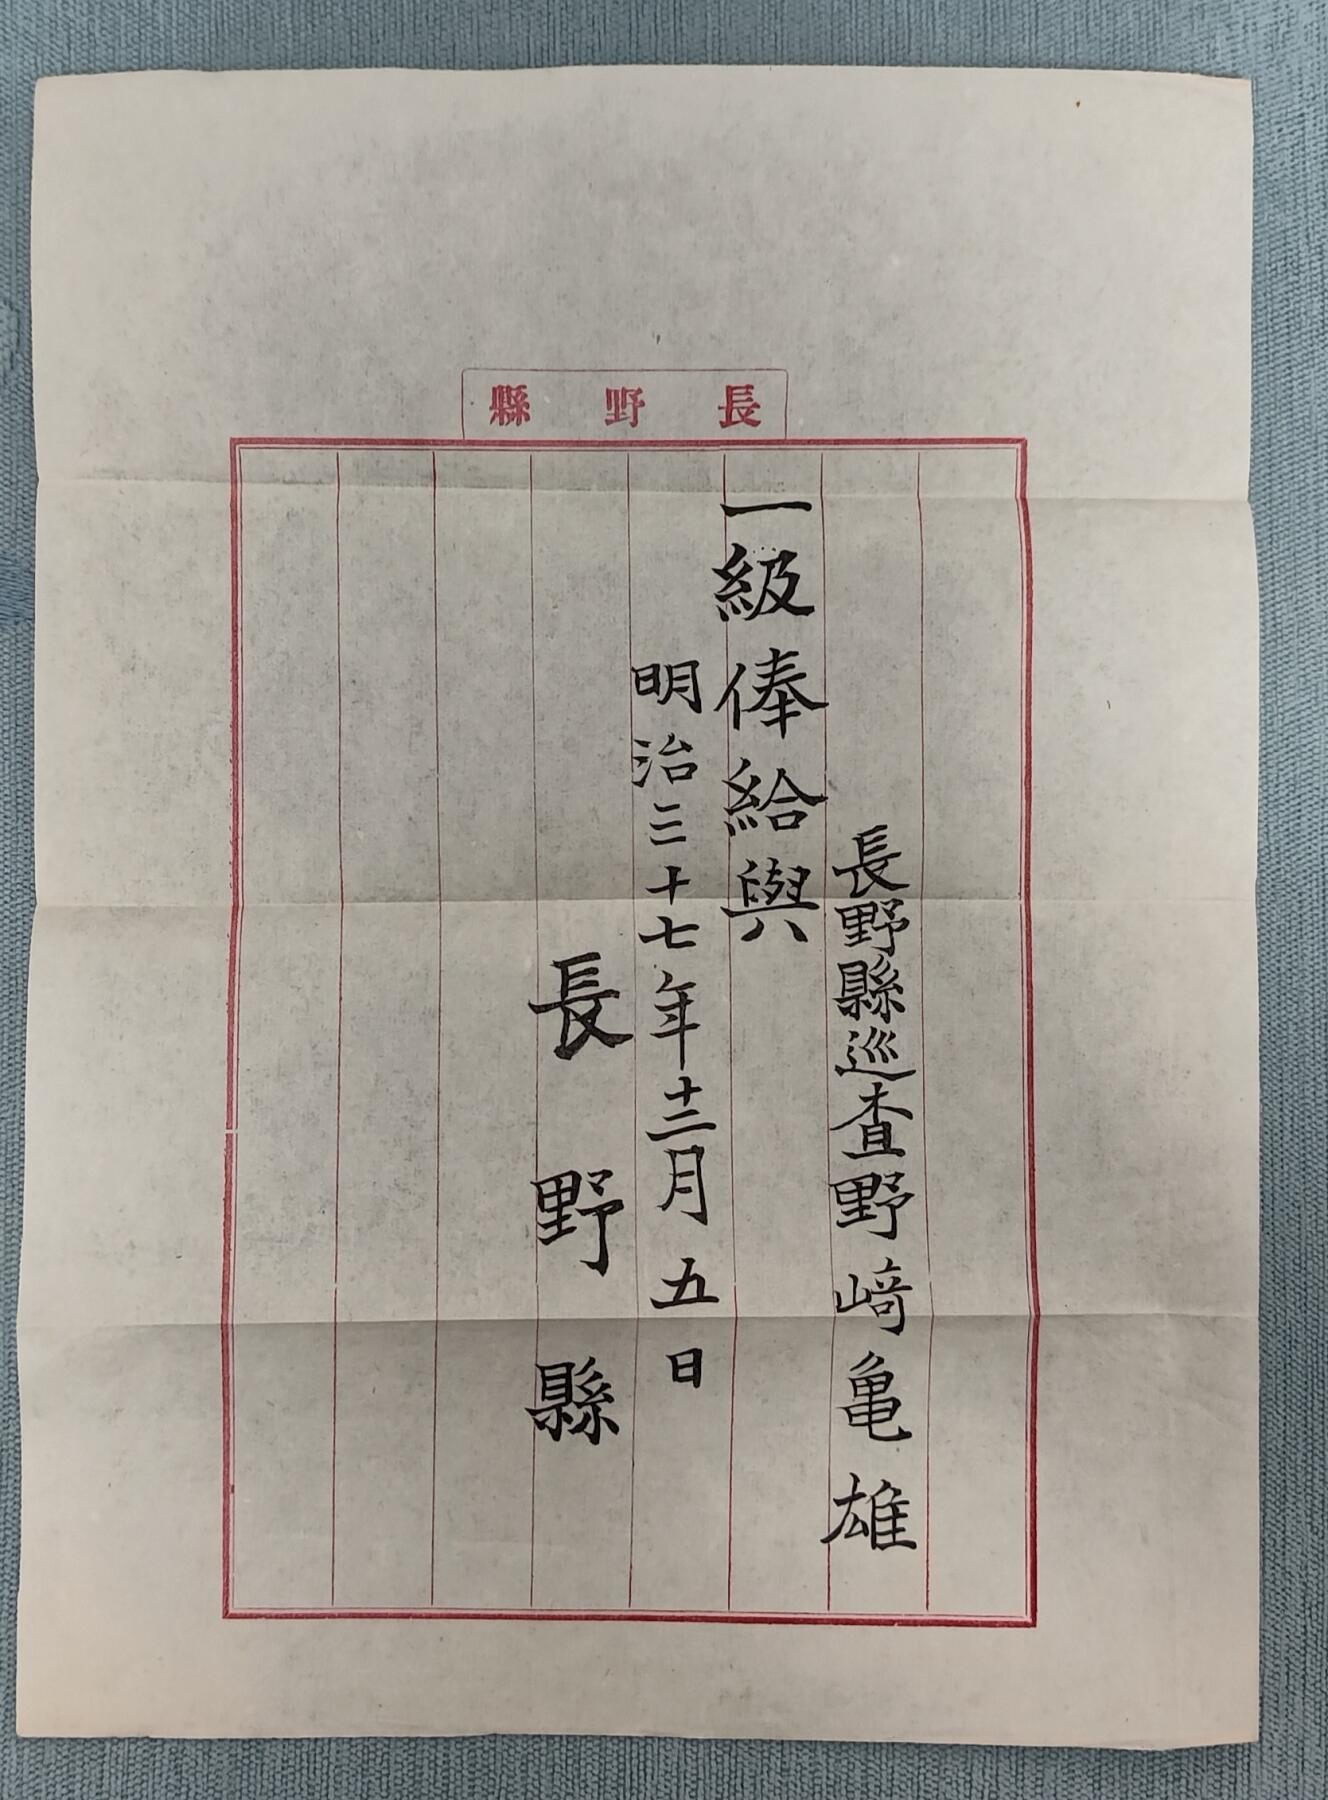 長野縣
長野縣巡查野﨑亀雄
一級俸給與
明治三十七年十二月五日
長野縣